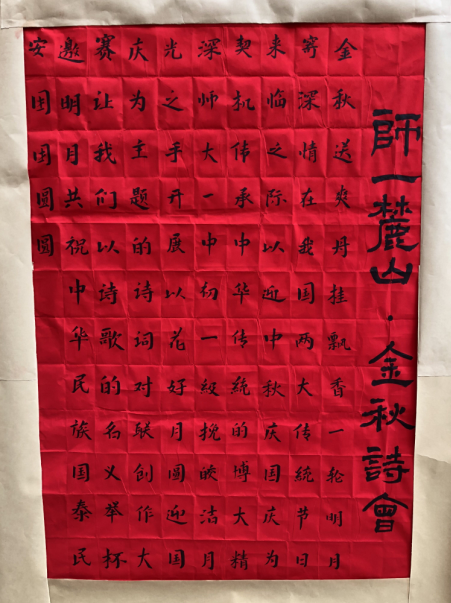 師一麓山·金秋詩會
金秋送爽丹挂飘香一轮明月
寄深情在我国两大传统节日
来临之际以迎中秋庆国庆为
契机伟承中华传统的博大精
深师大一中初一级挽皎洁月
光之手开展以花好月圆迎国
庆为主题的诗词对联创作大
赛让我们以诗歌的名义举杯
邀明月共祝中华民族国泰民
安团团圆圆